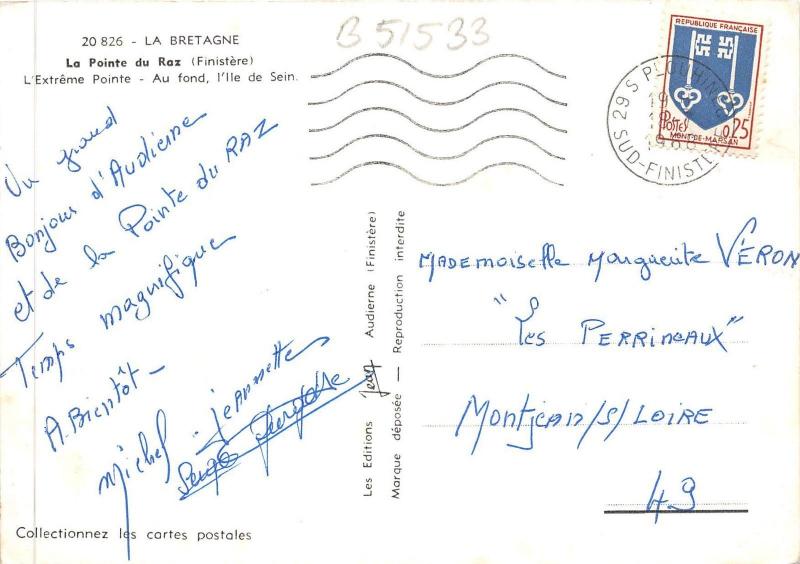 B 51533
20 826 - LA BRETAGNE
La Pointe du Raz (Finistère)
L'Extrême Pointe - Au fond, l'Ile de Sein.
Un grand
Bonjour d'Audierne
et de la Pointe du RAZ
Temps magnifique
A. Bientôt -
Michel Jeannette
Serge
Collectionnez les cartes postales
Les Editions Jean Audierne (Finistère)
Marque déposée — Reproduction interdite
REPUBLIQUE FRANÇAISE
POSTES 0,25
MONT-DE-MARSAN
29 S PLOUHIN
19
SUD-FINISTE
MADEMOISELLE Marguerite VÉRON
"Les PERRINEAUX"
MONTJEAN/S/LOIRE
49